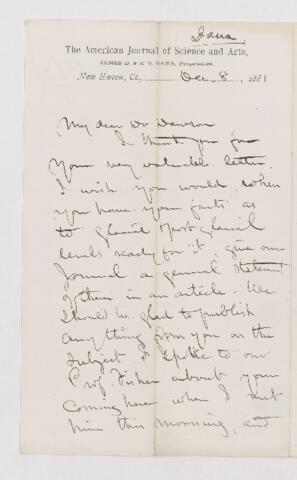 Dana
The American Journal of Science and Arts,
JAMES D. & E. S. DANA, Proprietors.
New Haven, Ct., Dec. 8, 1881
My dear Dr Dawson
I thank you for
your very valuable letter.
I wish you would, when
you have your facts as
to glacial & post-glacial
levels ready for it, give our
Journal a general statement
of them in an article. We
should be glad to publish
anything from you on the
subject. I spoke to our
Prof. Fisher about your
coming here when I met
him this morning, and